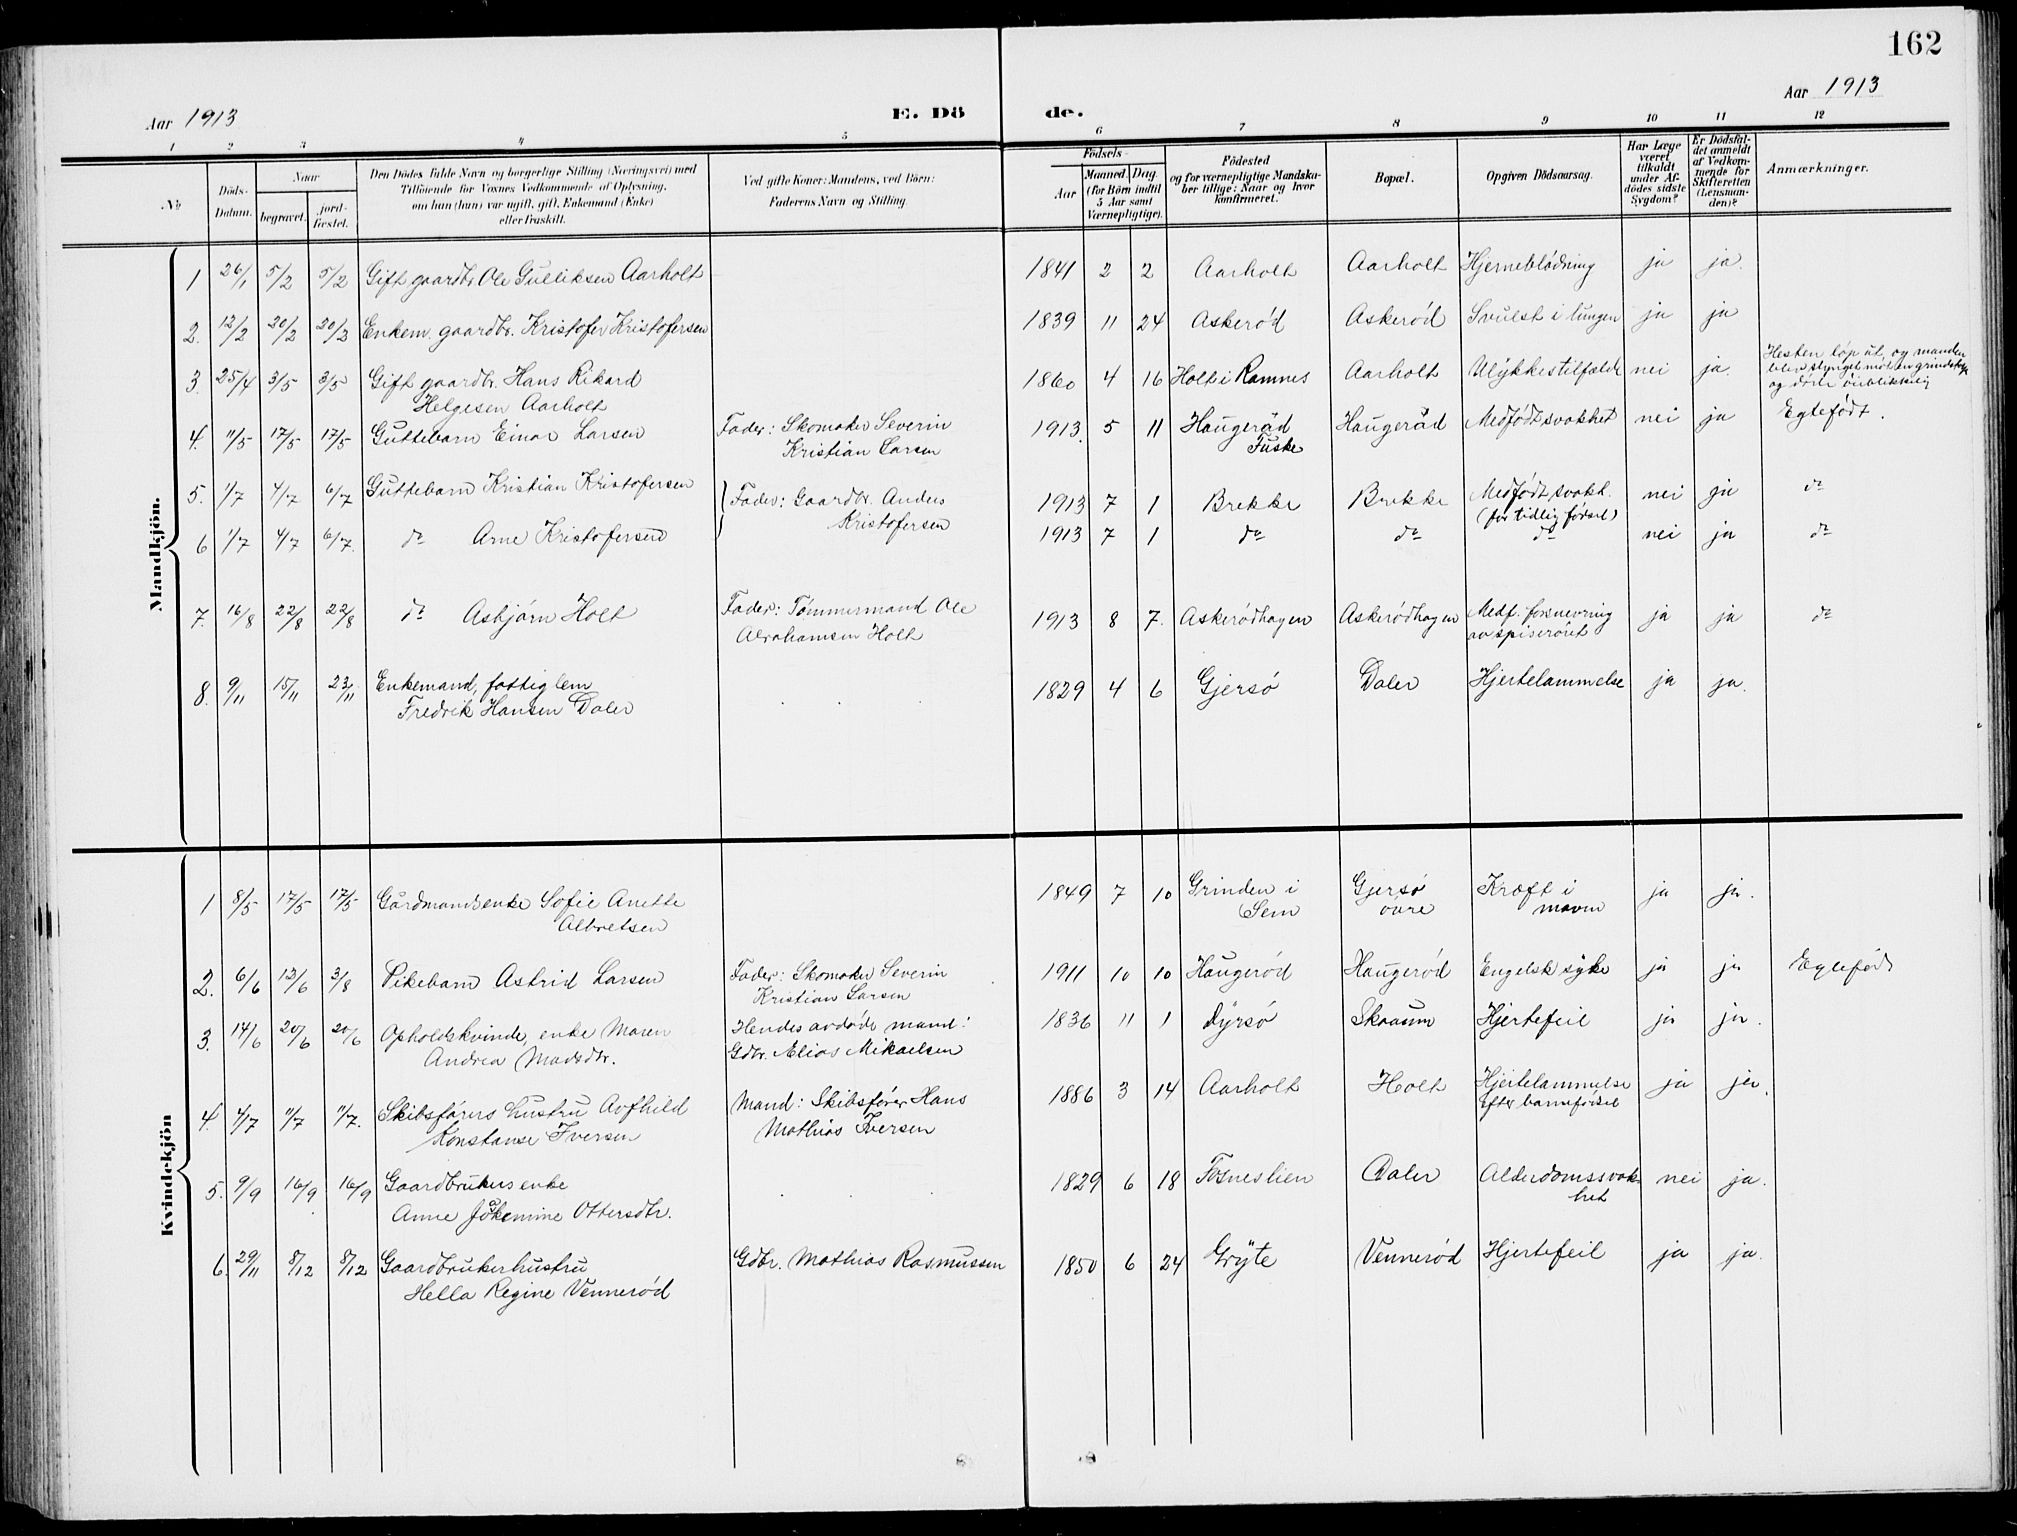 162
Aar 1913
E. Dö
de.
Aar 1913
1 2 3 4 5 6 7 8 9 10 11 12
№
Döds-
Datum.
Naar
begravet.
jord-
fæstet.
Den Dödes fulde Navn og borgerlige Stilling (Næringsvei) med
Tilföiende for Voxnes Vedkommende af Oplysning,
om han (hun) var ugift, gift, Enkemand (Enke)
eller fraskilt.
Ved gifte Koner: Mandens, ved Börn:
Faderens Navn og Stilling.
Födsels-
Aar
Maaned. Dag.
(for Börn indtil
5 Aar samt
Værnepligtige).
Födested
og for værnepligtige Mandska-
ber tillige: Naar og hvor
konfirmeret.
Bopæl.
Opgiven Dödsaarsag.
Har Læge
været
tilkaldt
under Af-
dödes sidste
Sygdom?
Er Dödsfal-
det anmeldt
af Vedkom-
mende for
Skifteretten
(Lensman-
den)?
Anmærkninger.
Mandkjön.
1 26/1 5/2 5/2 Gift gaardbr. Ole Gulliksen Aarholt 1841 2 2 Aarholt Aarholt Hjerneblödning ja ja.
2. 12/2 20/2 20/2 Enkem. gaardbr. Kristofer Kristofersen 1839 11 24 Askerød Askerød Svulst i lungen ja ja
3. 25/4 3/5 3/5 Gift gaardbr. Hans Rikard
Helgesen Aarholt
1860 4 16 Holt i Ramnes Aarholt Ulykkestilfælde nei ja.
Hesten løp ut, og manden
blev slynget mot en grindstolpe
og døde øieblikkelig
4. 11/5 17/5 17/5 Guttebarn Einar Larsen
Fader: Skomaker Severin
Kristian Larsen
1913. 5 11 Haugeråd Haugeråd Medfødt svakhet nei ja Egtefødt.
5. 1/7 4/7 6/7 Guttebarn Kristian Kristofersen
Fader: Gaardbr. Anders
Kristofersen
1913 7 1 Brekke Brekke Medfødt svakh.
(for tidlig førsel)
nei ja do
6 1/7 4/7 6/7. do Arne Kristofersen 1913 7 1 do do do nei ja do
7. 16/8 22/8 22/8 do Asbjørn Holt
Fader: Tømmermand Ole
Abrahamsen Holt
1913 8 7. Askerødhagen Askerødhagen Medf. forsnevring
av spiserøret
ja ja do
8. 9/11 15/11 23/11 Enkemand, fattiglem
Fredrik Hansen Daler
1829 4 6 Gjersø Daler Hjertelammelse ja ja.
Kvindekjön
1 8/5 17/5 17/5 Gårdmandsenke Sofie Anette
Albretsen
1849 7 10 Grinden i
Sem
Gjersø
øvre
Kræft i
maven
ja ja.
2. 6/6 13/6 3/8 Pikebarn Astrid Larsen
Fader: Skomaker Severin
Kristian Larsen
1911 10 10 Haugerød Haugerød Engelsk syke ja ja Egtefødt
3. 14/6 20/6 20/6 Opholdskvinde, enke Maren
Andrea Madsdtr.
Hendes avdøde mand:
Gdbr. Elias Mikaelsen
1836 11 1 Dyrsø Skaaum Hjertefeil ja ja.
4. 4/7 11/7 11/7. Skibsførers hustru Arfhild
Konstanse Iversen
Mand: Skibsfører Hans
Mathias Iversen
1886 3 14 Aarholt Holt Hjertelammelse
efter barnefødsel
ja ja.
5. 9/9 16/9 16/9 Gaardbrukers enke
Anne Jokemine Ottersdtr.
1829 6 18 Fosneslien Daler Alderdomssvak-
het
nei ja.
6. 29/11 8/12 8/12 Gaardbrukerhustru
Hella Regine Vennerød
Gdbr. Mathias Rasmussen
1850 6 24 Gryte Vennerød Hjertefeil ja ja.